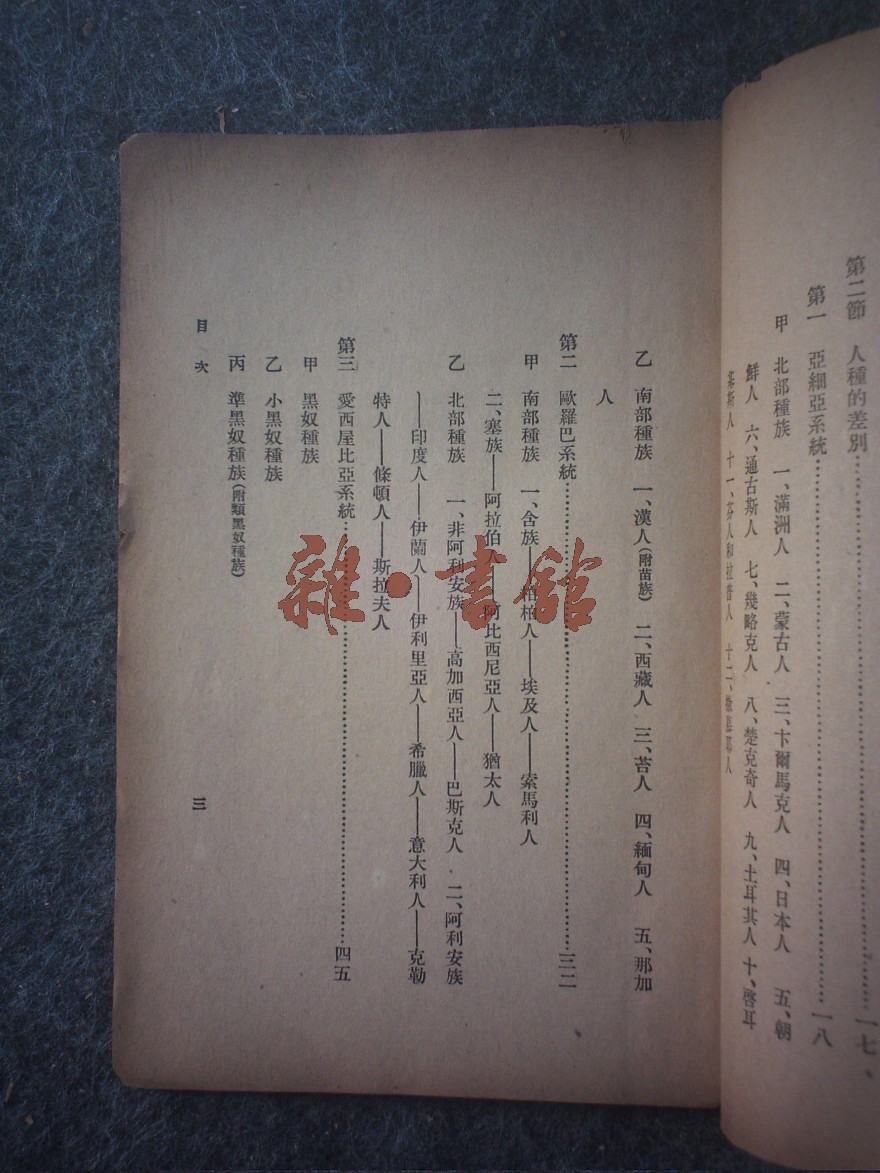 第二節　人種的差別……一七
第一　亞細亞系統……一八
甲　北部種族　一、滿洲人　二、蒙古人　三、卞爾馬克人　四、日本人　五、朝
鮮人　六、通古斯人　七、幾略克人　八、楚克奇人　九、土耳其人　十、啓耳
斯人　十一、芬人和拉普人　十二、
乙　南部種族　一、漢人(附苗族)　二、西藏人　三、苔人　四、緬甸人　五、那加
人
第二　歐羅巴系統……三二
甲　南部種族　一、含族——柏柏人——埃及人——索馬利人
二、塞族——阿拉伯人——阿比西尼亞人——猶太人
乙　北部種族　一、非阿利安族——高加西亞人——巴斯克人　二、阿利安族
——印度人——伊蘭人——伊利里亞人——希臘人——意大利人——克勒
特人——條頓人——斯拉夫人
第三　愛西屋比亞系統……四五
甲　黑奴種族
乙　小黑奴種族
丙　準黑奴種族(附類黑奴種族)
目次　三
雜·書館